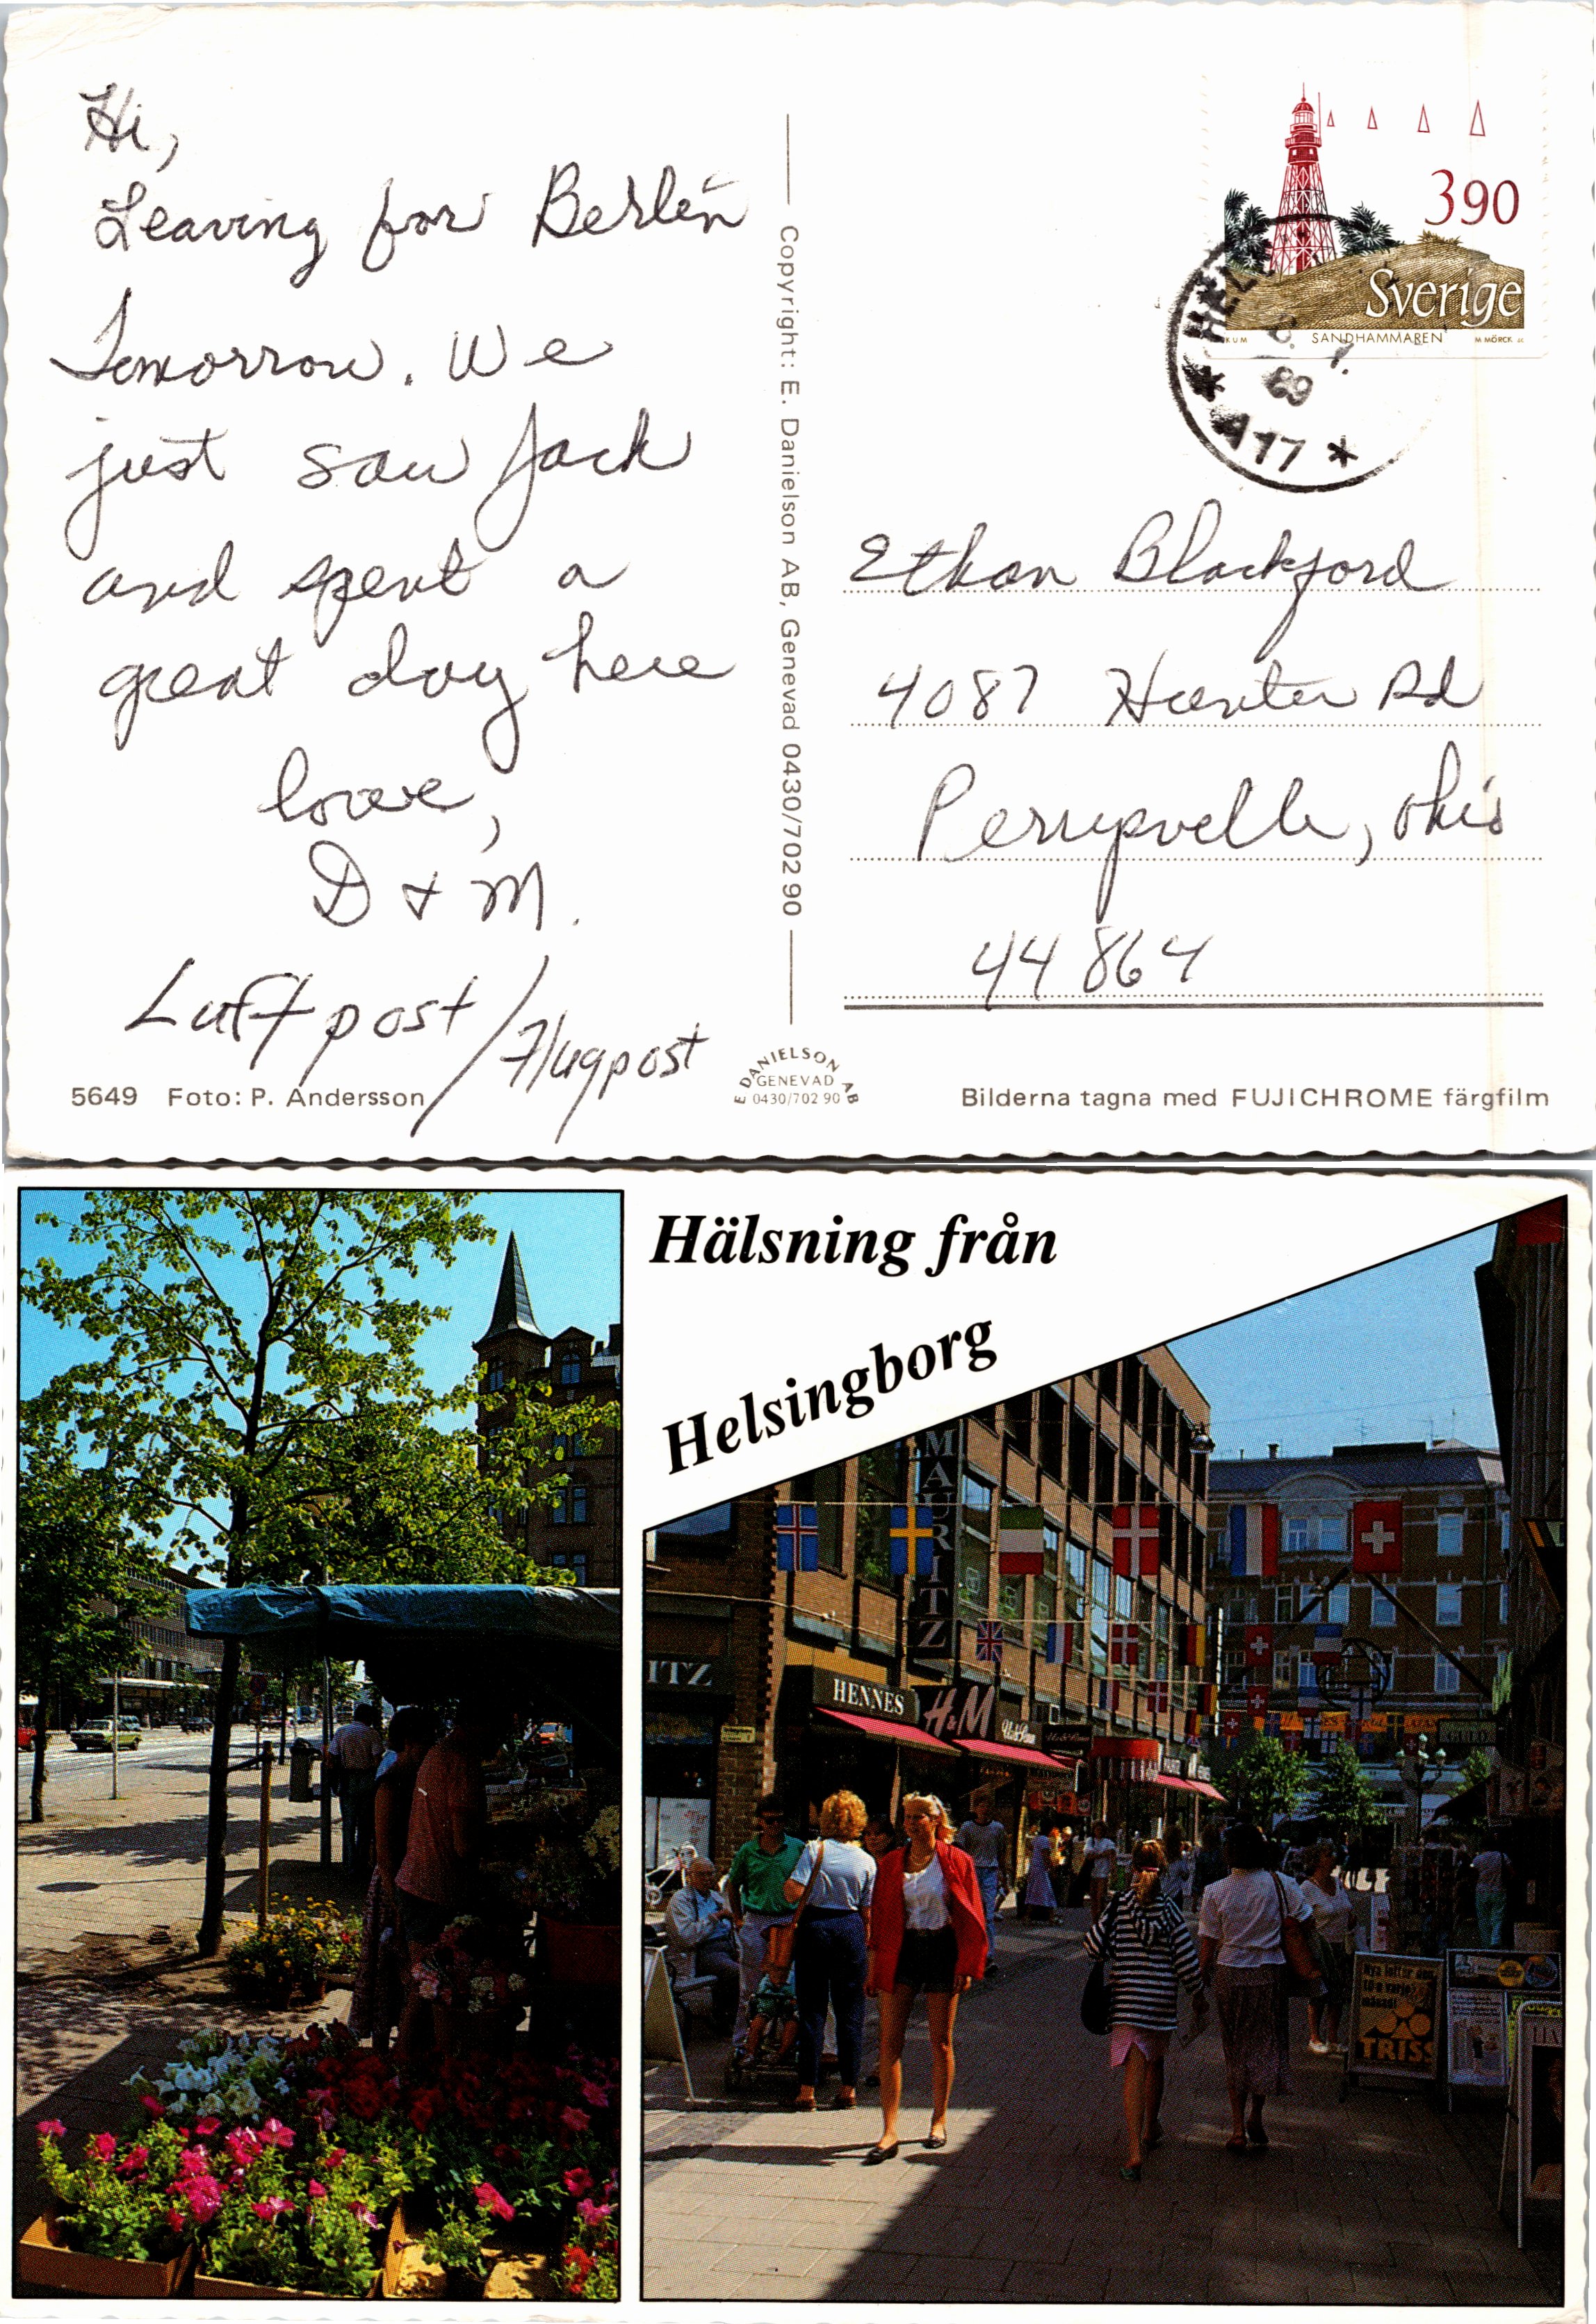 Hi,
Leaving for Berlin
Tomorrow. We
just saw Jack
and spent a
great day here
love,
D + M.
Luftpost / Flugpost
5649 Foto: P. Andersson
Copyright: E. Danielson AB, Genevad 0430/702 90
E DANIELSON AB
GENEVAD
0430/702 90
390
Sverige
SANDHAMMAREN
M MÖRCK
HEL
89
* 117 *
Ethan Blackford
4087 Hunter Rd
Perrysville, Ohio
44864
Bilderna tagna med FUJICHROME färgfilm
Hälsning från
Helsingborg
MAURITZ
ITZ
HENNES
H&M
TRISS